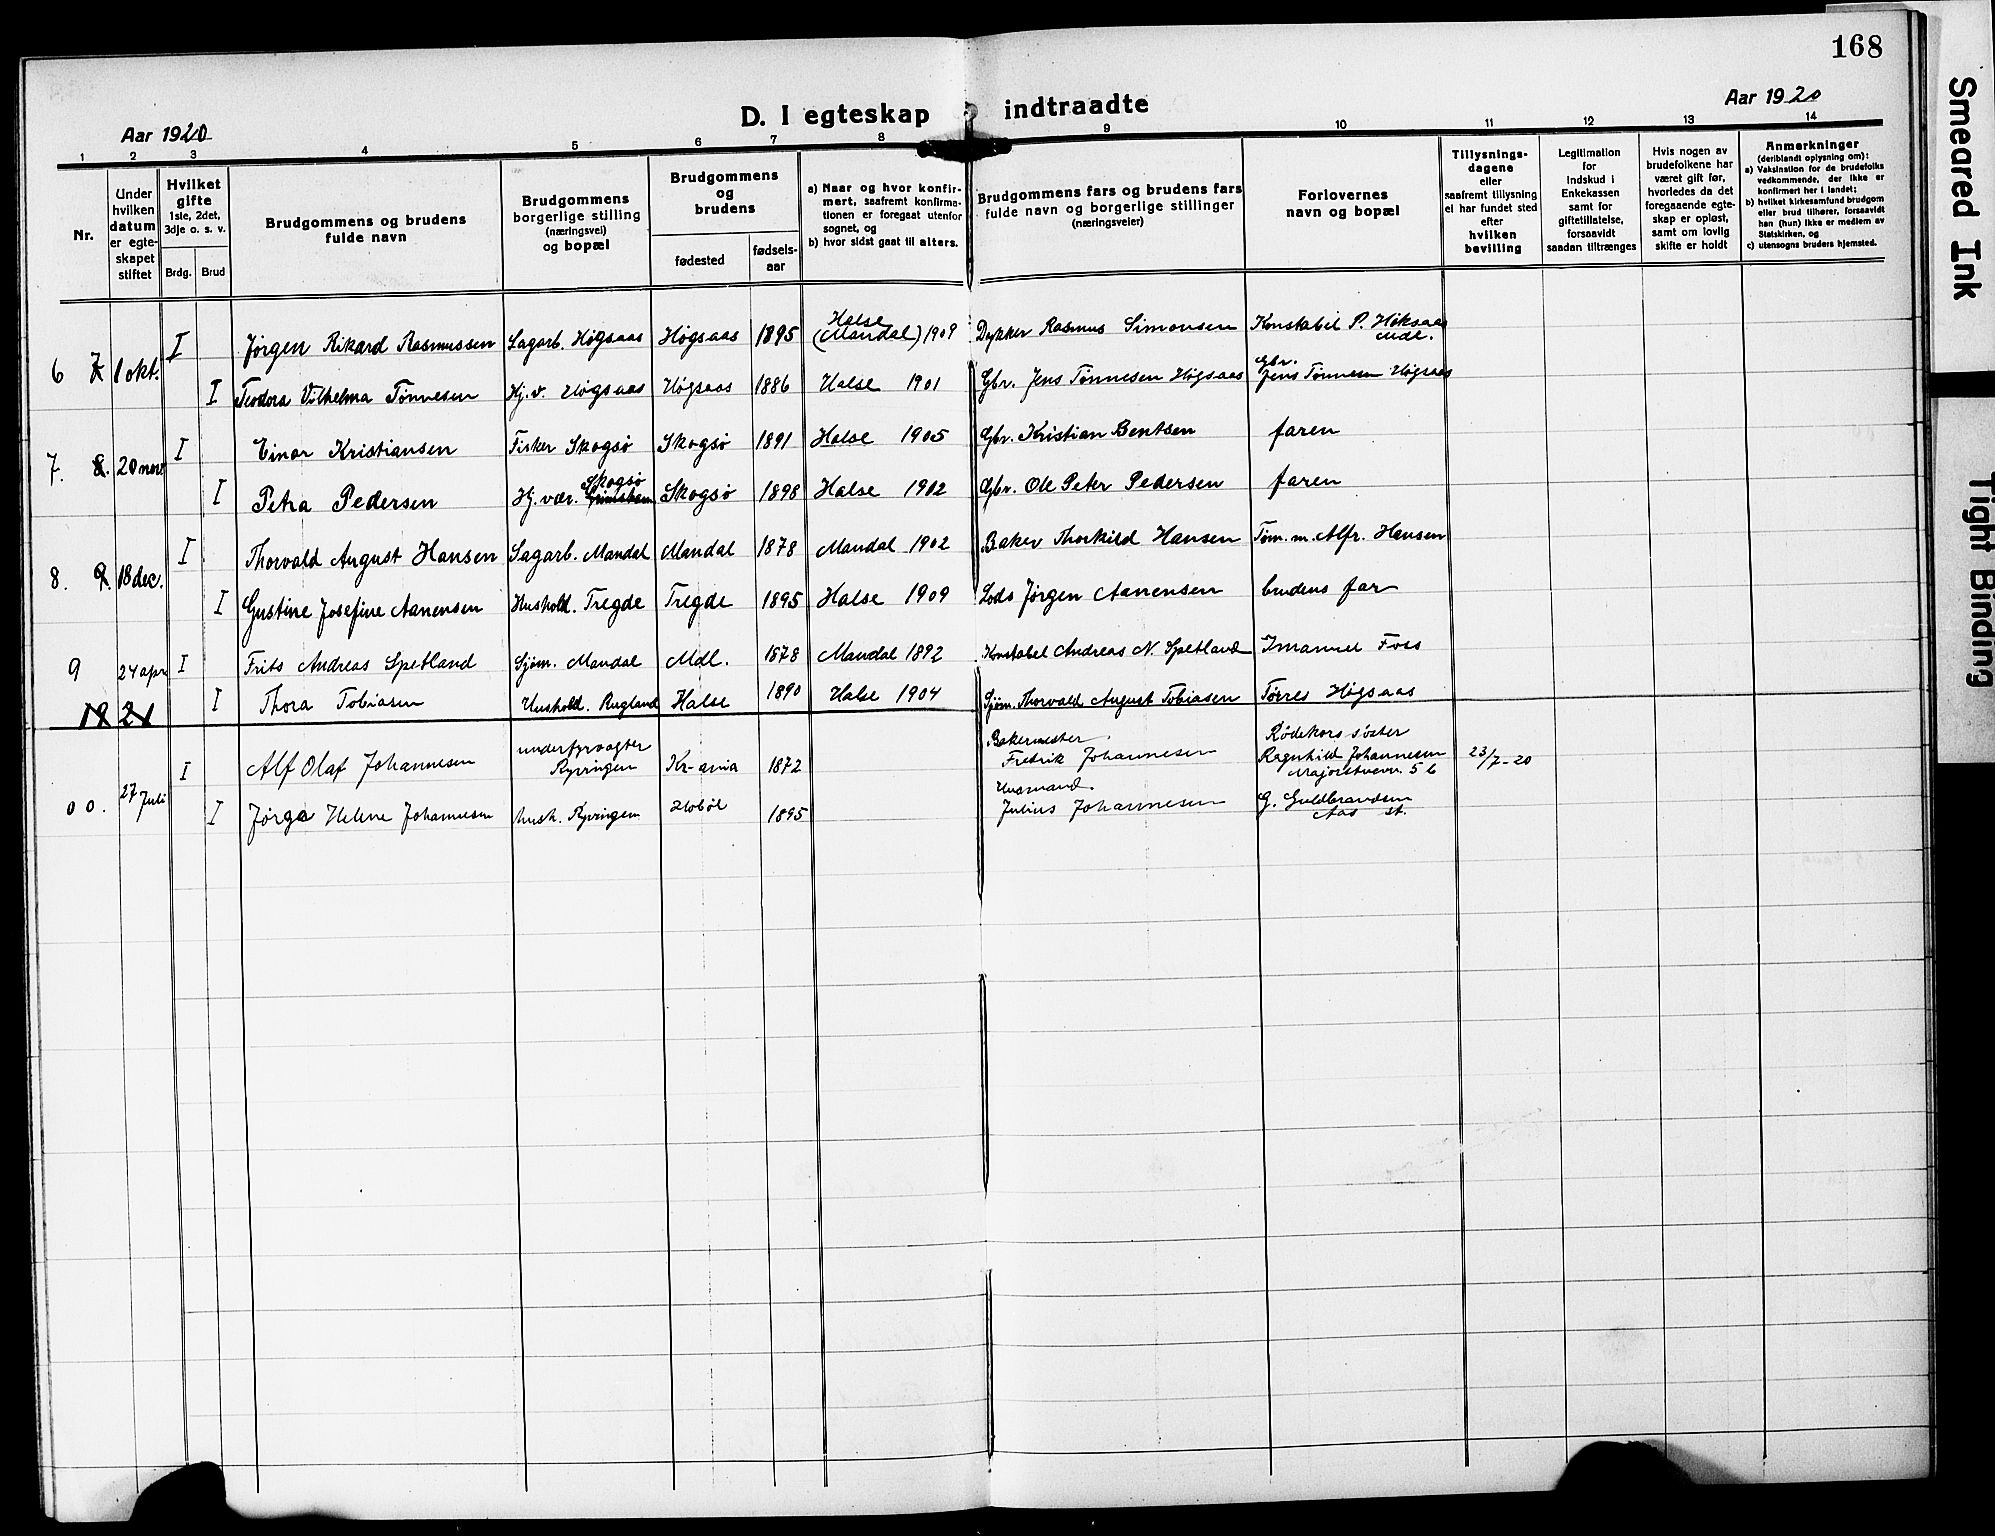 168
D. I egteskap indtraadte
Aar 1920
Aar 1920
1 2 3 4 5 6 7 8 9 10 11 12 13 14
Nr.
Under hvilken datum er egte-skapet stiftet
Hvilket gifte 1ste, 2det, 3dje o. s. v.
Brdg. Brud
Brudgommens og brudens fulde navn
Brudgommens borgerlige stilling (næringsvei) og bopæl
Brudgommens og brudens
fødested
fødsels-aar
a) Naar og hvor konfir-mert, saafremt konfirma-tionen er foregaat utenfor sognet, og
b) hvor sidst gaat til alters.
Brudgommens fars og brudens fars fulde navn og borgerlige stillinger (næringsveier)
Forlovernes navn og bopæl
Tillysnings-dagene eller saafremt tillysning ei har fundet sted efter hvilken bevilling
Legitimation for Indskud i Enkekassen samt for giftetillatelse, forsaavidt saadan tiltrænges
Hvis nogen av brudefolkene har været gift før, hvorledes da det foregaaende egte-skap er opløst, samt om lovlig skifte er holdt
Anmerkninger (deriblandt oplysning om):
a) Vaksination for de brudefolks vedkommende, der ikke er konfirmert her i landet;
b) hvilket kirkesamfund brudgom eller brud tilhører, forsaavidt han (hun) ikke er medlem av Statskirken, og
c) utensogns bruders hjemsted.
6 7 1 okt. I Jørgen Rikard Rasmussen Sagarb. Høgsaas Høgsaas 1895 Halse (Mandal) 1909 Dykker Rasmus Simonsen Konstabel P. Høksaas Mdl.
I Teodora Vilhelma Tønnesen Hj. v. Høgsaas Høgsaas 1886 Halse 1901 Gbr. Jens Tønnesen Høgsaas Gbr. Jens Tønnesen Høgsaas
7. 8. 20 nov. I Einar Kristiansen Fisker Skogsø Skogsø 1891 Halse 1905 Gbr. Kristian Bentsen faren
I Petra Pedersen Hj. vær. Skogsø Skogsø 1898 Halse 1912 Gbr. Ole Peter Pedersen faren
8. 9. 18 dec. I Thorvald August Hansen Sagarb. Mandal Mandal 1878 Mandal 1902 Baker Thorkild Hansen Tøm. m. Alfr. Hansen
I Gustine Josefine Aanensen Hushold. Tregde Tregde 1895 Halse 1909 Lods Jørgen Aanensen brudens far
9 24 apr I Frits Andreas Spetland Sjøm. Mandal Mdl. 1878 Mandal 1892 Konstabel Andreas N. Spetland Imanuel Foss
I Thora Tobiasen Hushold. Rugland Halse 1890 Halse 1904 Sjøm. Thorvald August Tobiasen Tørres Høgsaas
1921
00. 27 Juli I Alf Olaf Johannesen underfyrvogter Ryvingen Kr-ania 1872 Bakermester Fredrik Johannesen Rødekors søster Ragnhild Johannesen Majorstuevn. 5 b 23/7-20
I Jørga Helene Johannesen hush. Ryvingen Hobøl 1895 Husmand. Julius Johannesen G. Guldbrandsen Aas st.
Smeared Ink
Tight Binding